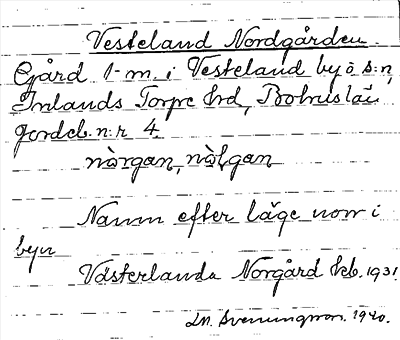 Vesteland Nordgården.
Gård 1 m. i Vesteland by ö s:n,
Inlands Torpe hrd, Bohuslän
Jordeb. n:r 4.
nòrgan, nòlgan
Namn efter läge norr i
byn
Västerlanda Norgård kb. 1931
Svenungsson. 1940.